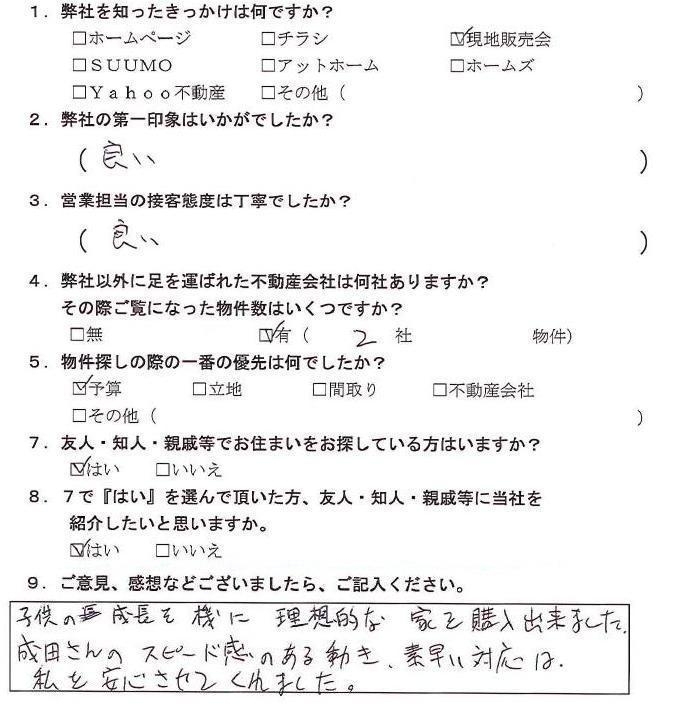 1．弊社を知ったきっかけは何ですか？
□ホームページ □チラシ ☑現地販売会
□ＳＵＵＭＯ □アットホーム □ホームズ
□Ｙａｈｏｏ不動産 □その他（ ）
2．弊社の第一印象はいかがでしたか？
（ 良い ）
3．営業担当の接客態度は丁寧でしたか？
（ 良い ）
4．弊社以外に足を運ばれた不動産会社は何社ありますか？
その際ご覧になった物件数はいくつですか？
□無 ☑有（ 2 社 物件）
5．物件探しの際の一番の優先は何でしたか？
☑予算 □立地 □間取り □不動産会社
□その他（ ）
7．友人・知人・親戚等でお住まいをお探している方はいますか？
☑はい □いいえ
8．7で『はい』を選んで頂いた方、友人・知人・親戚等に当社を
紹介したいと思いますか。
☑はい □いいえ
9．ご意見、感想などございましたら、ご記入ください。
子供の成長を機に 理想的な 家を購入出来ました。
成田さんの スピード感のある動き、素早い対応は、
私を安心させてくれました。